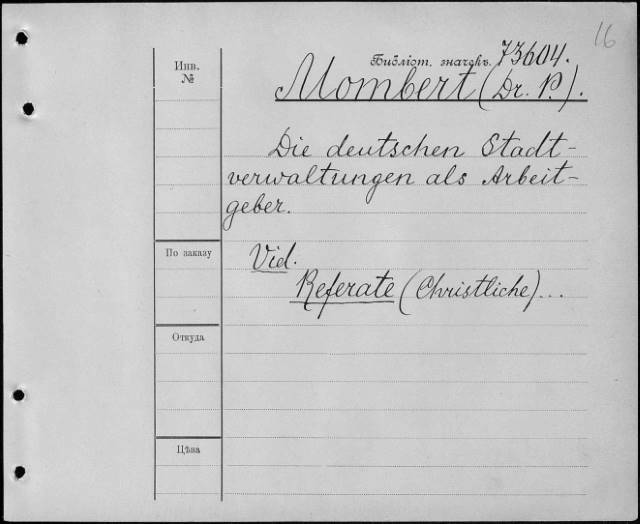 16
Инв.
№
Библіот. значекъ. 73604.
Mombert (Dr. P.).
Die deutschen Stadt-
verwaltungen als Arbeit-
geber.
По заказу
Vid.
Referate (Christliche)...
Откуда
Цѣна